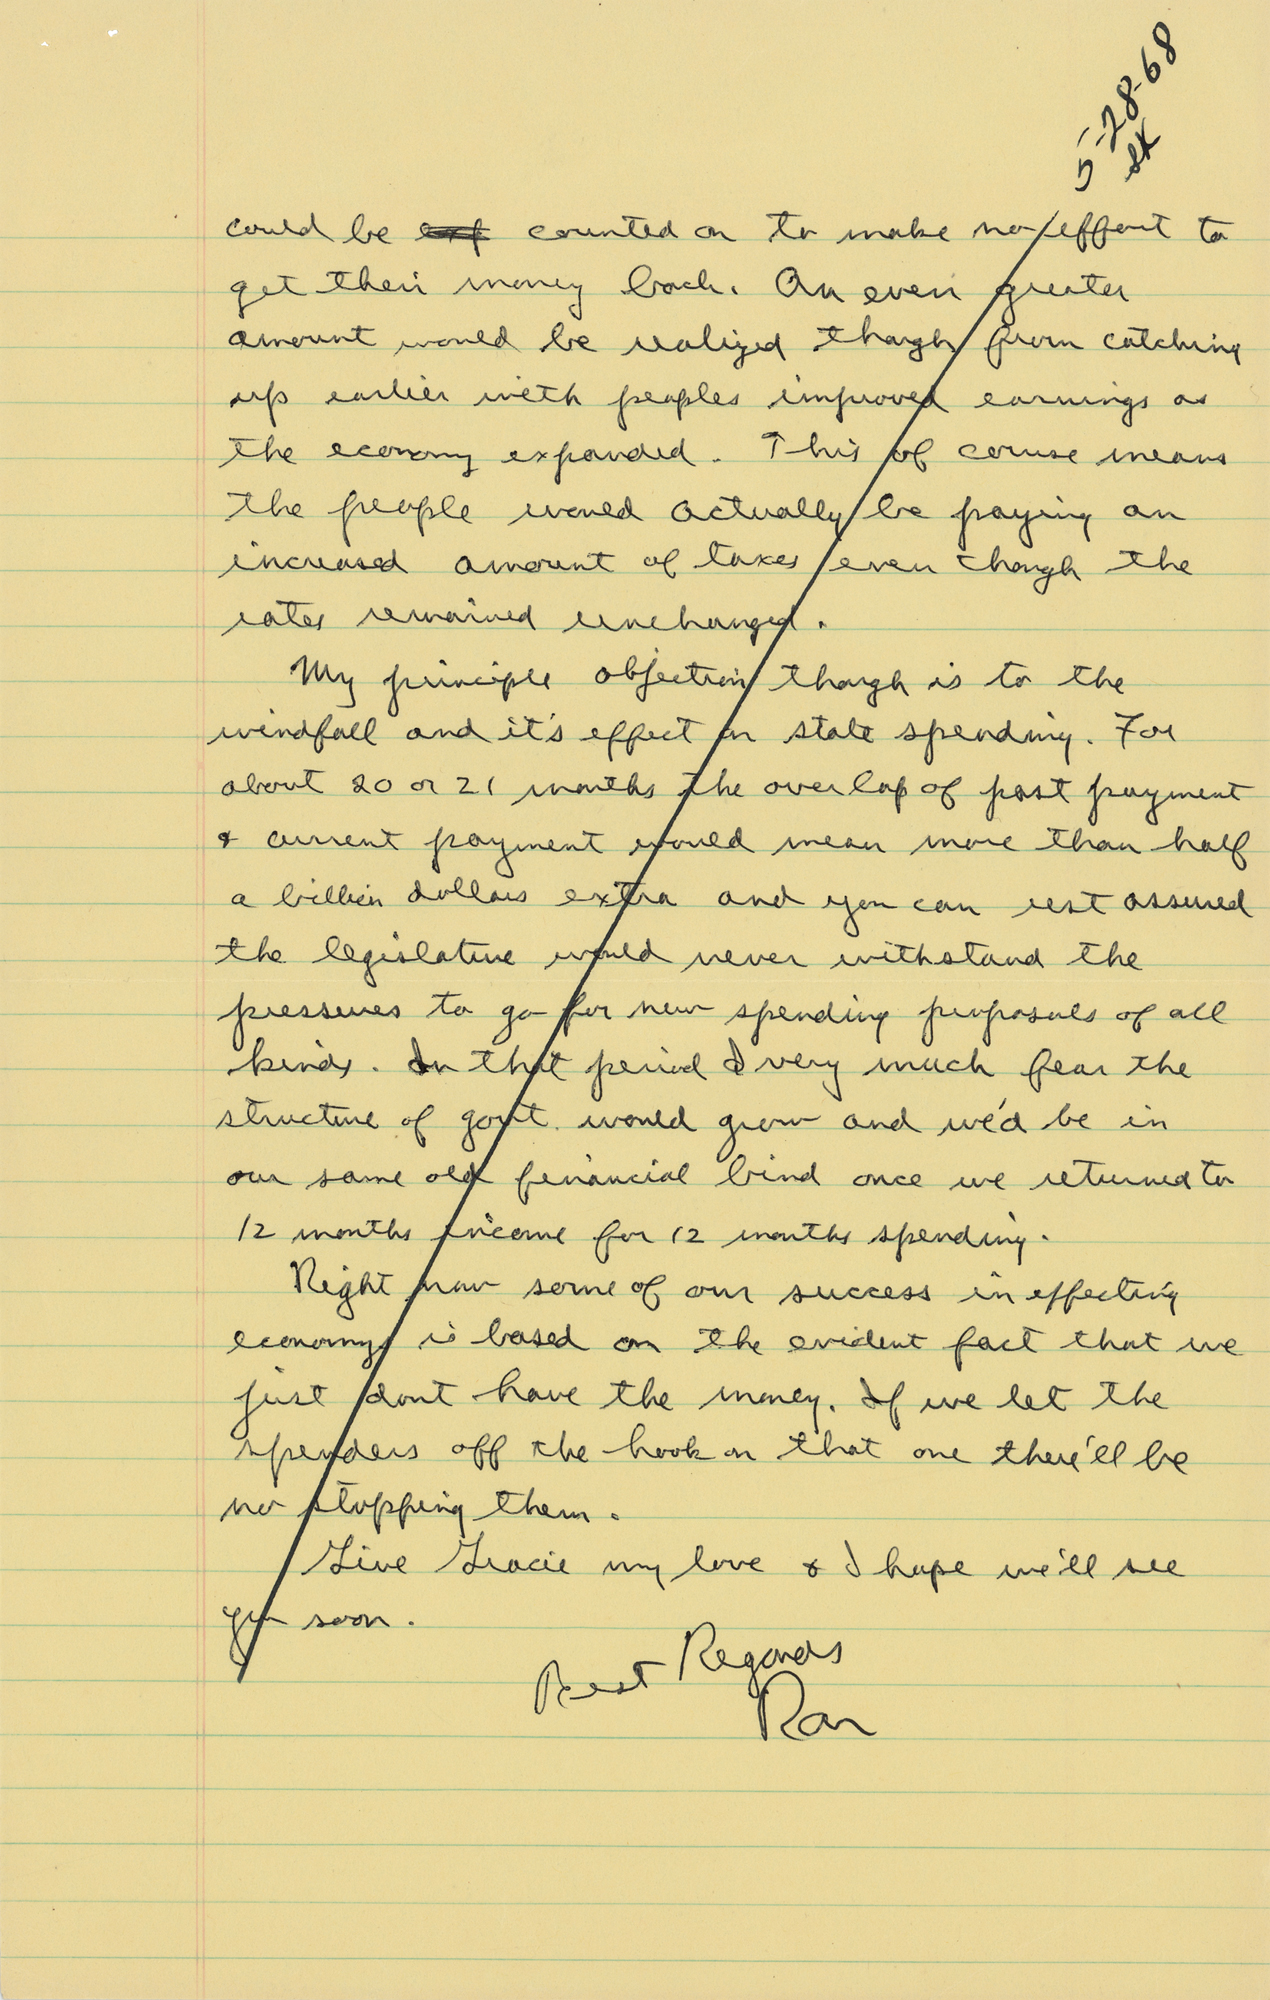 5-28-68
could be counted on to make no effort to
get their money back. An even greater
amount would be realized though from catching
up earlier with peoples improved earnings as
the economy expanded. This of course means
the people would actually be paying an
increased amount of taxes even though the
rates remained unchanged.
My principle objection though is to the
windfall and it's effect on state spending. For
about 20 or 21 months the overlap of past payment
& current payment would mean more than half
a billion dollars extra and you can rest assured
the legislature would never withstand the
pressures to go for new spending proposals of all
kinds. In that period I very much fear the
structure of govt. would grow and we'd be in
our same old financial bind once we returned to
12 months income for 12 months spending.
Right now some of our success in effecting
economys is based on the evident fact that we
just dont have the money. If we let the
spenders off the hook on that one there'll be
no stopping them.
Give Gracie my love & I hope we'll see
you soon.
Best Regards
Ron